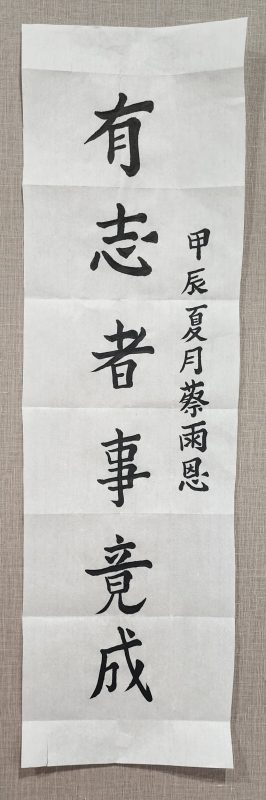 有志者事竟成
甲辰夏月蔡雨恩